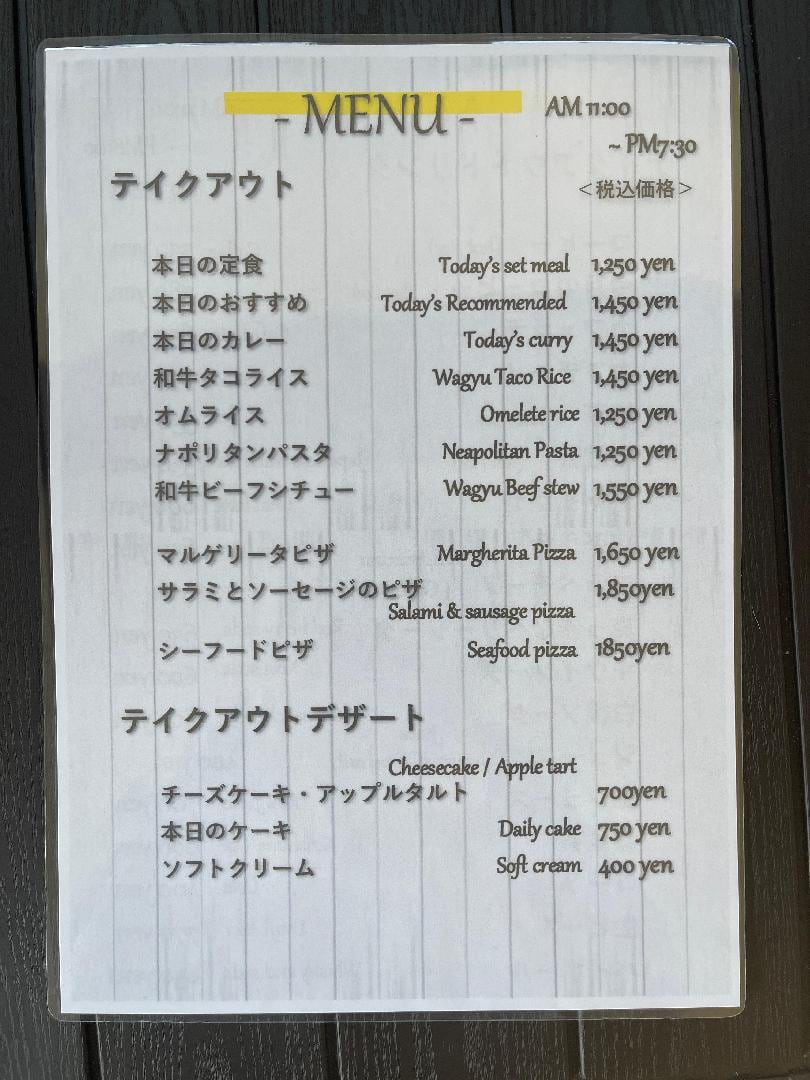 - MENU -
AM 11:00
~ PM7:30
テイクアウト
<税込価格>
本日の定食 Today's set meal 1,250 yen
本日のおすすめ Today's Recommended 1,450 yen
本日のカレー Today's curry 1,450 yen
和牛タコライス Wagyu Taco Rice 1,450 yen
オムライス Omelete rice 1,250 yen
ナポリタンパスタ Neapolitan Pasta 1,250 yen
和牛ビーフシチュー Wagyu Beef stew 1,550 yen
マルゲリータピザ Margherita Pizza 1,650 yen
サラミとソーセージのピザ 1,850yen
Salami & sausage pizza
シーフードピザ Seafood pizza 1850yen
テイクアウトデザート
Cheesecake / Apple tart
チーズケーキ・アップルタルト 700yen
本日のケーキ Daily cake 750 yen
ソフトクリーム Soft cream 400 yen